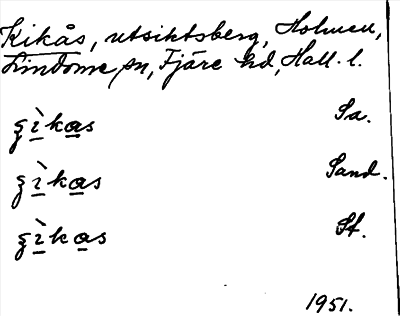 Kikås, utsiktsberg, Holmen,
Lindome sn, Fjäre hd, Hall. l.
ʂìkas Sa.
ʂìkas Sand.
ʂìkas St.
1951.